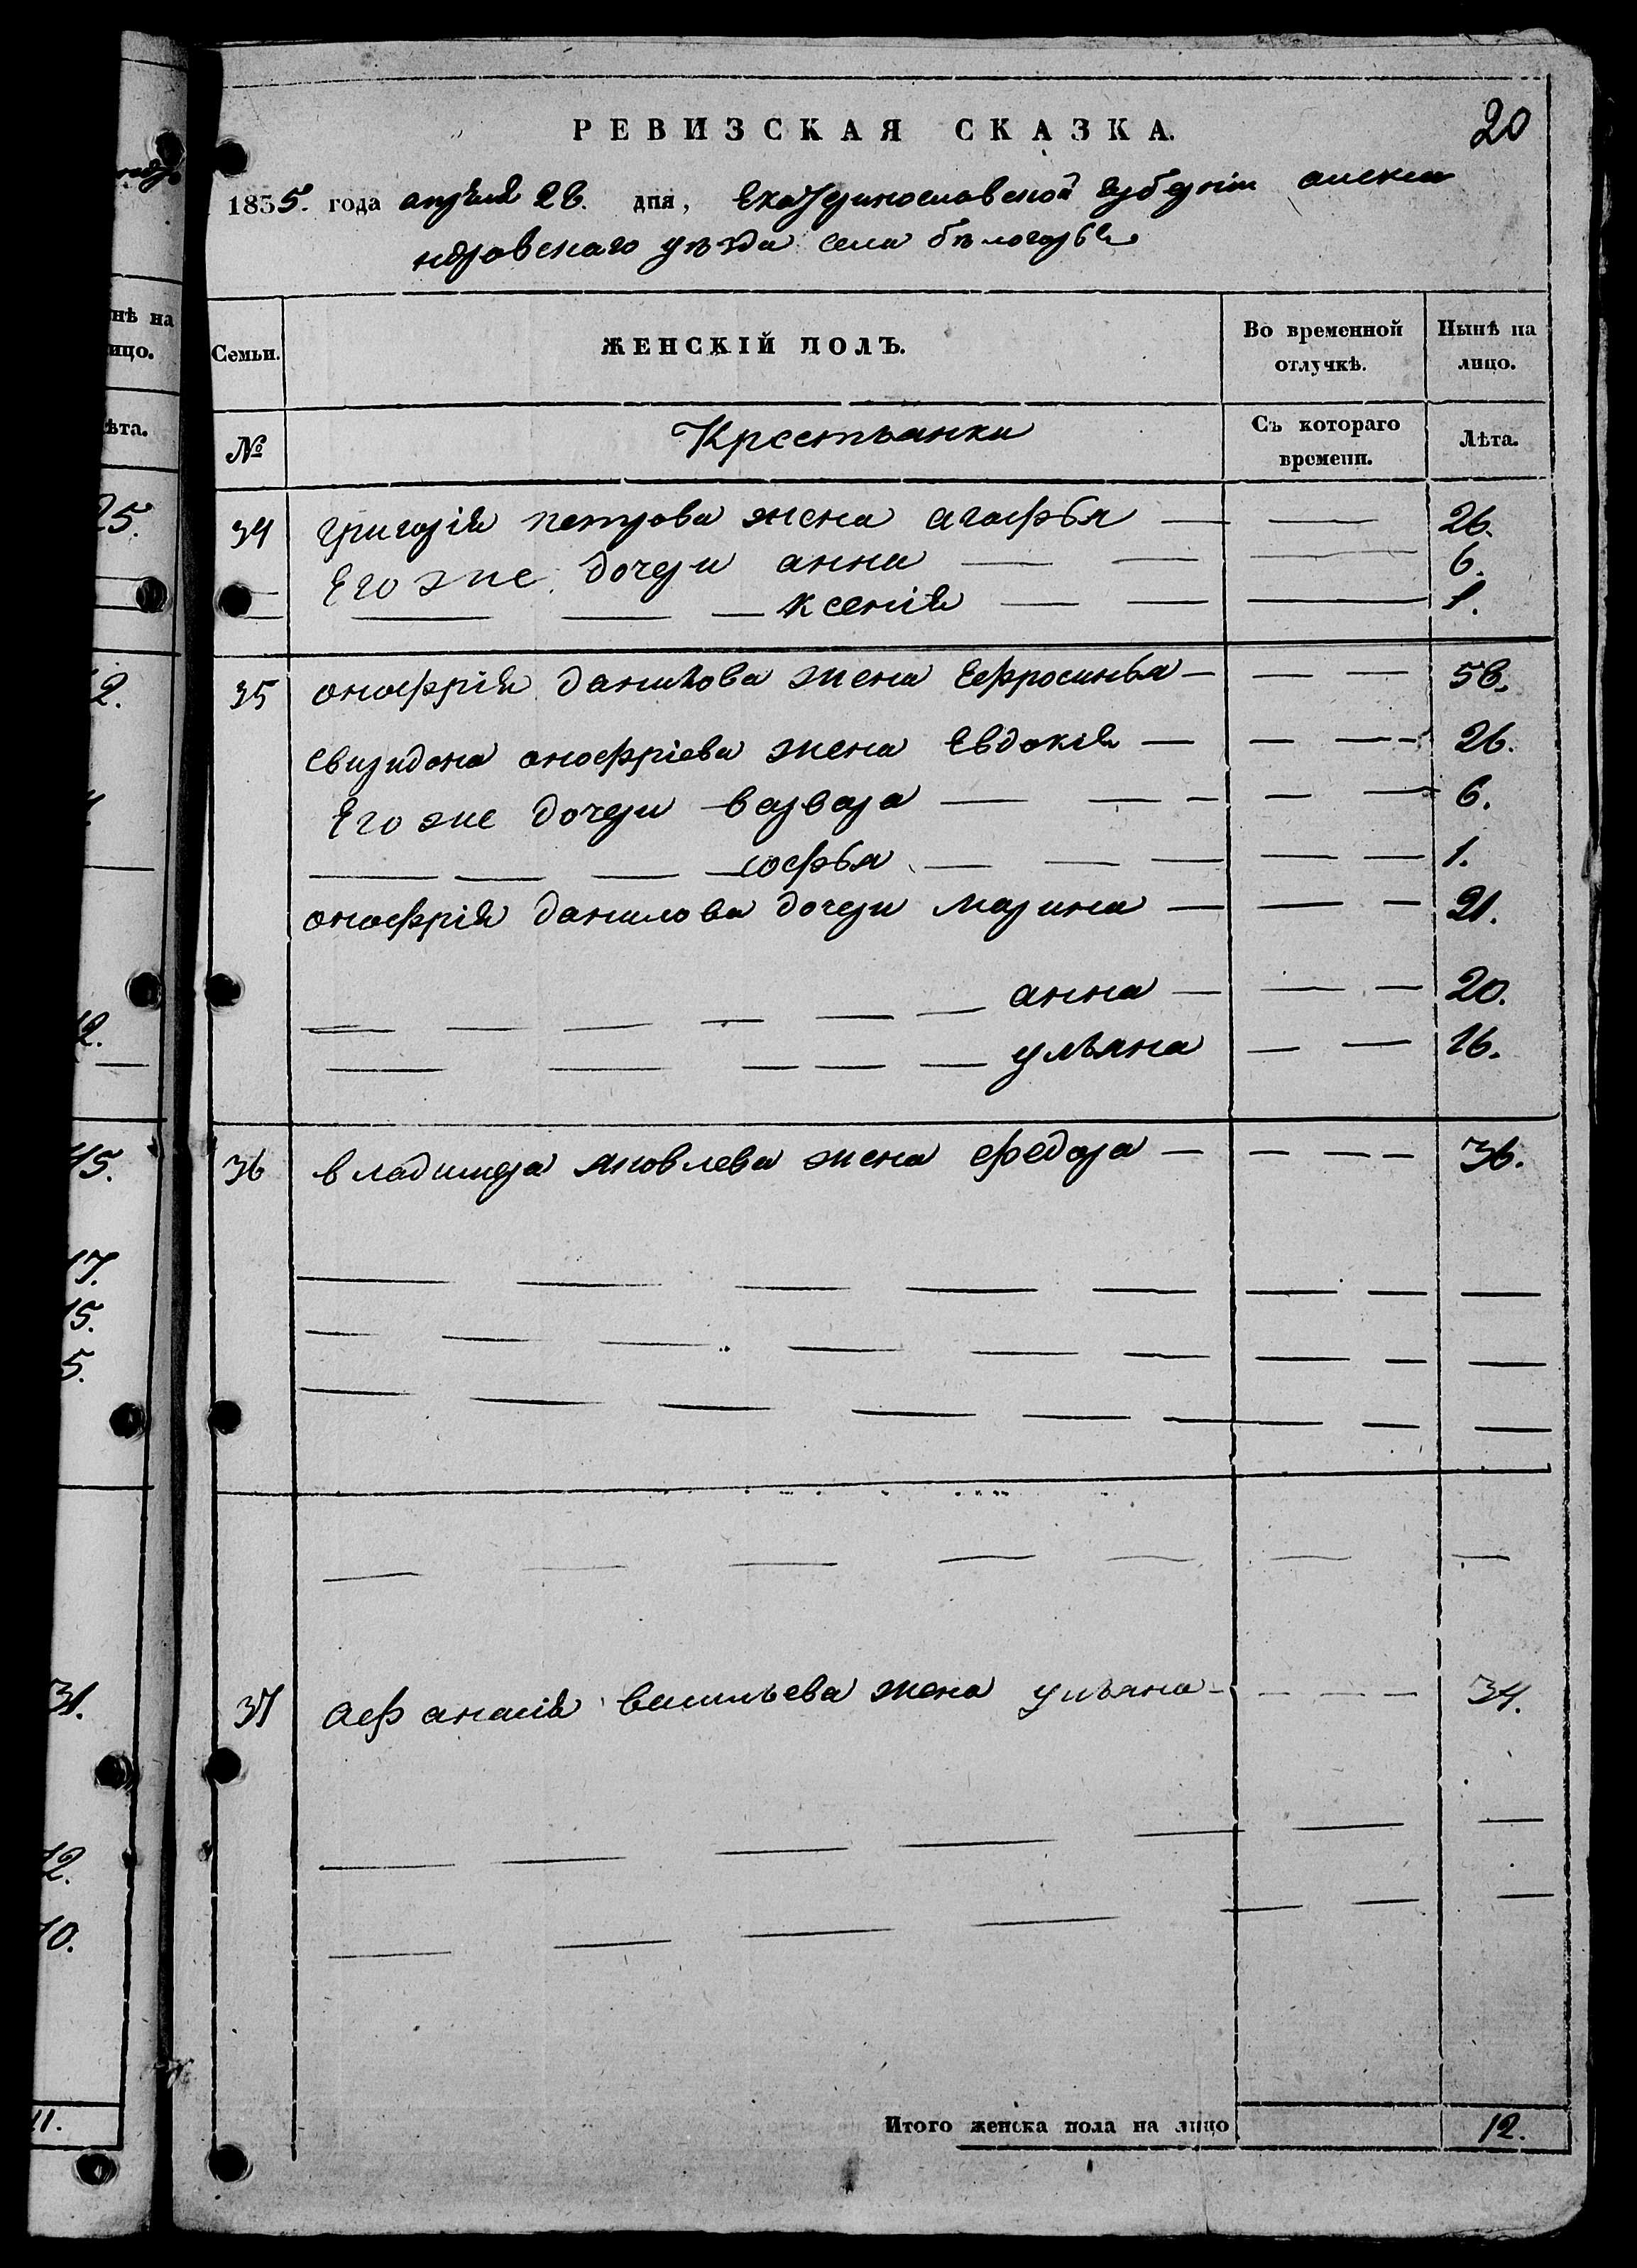 РЕВИЗСКАЯ СКАЗКА.
20
1835. года апреля 28. дня, Екатеринославской губернiи алекса
ндровскаго уѣзда села бѣлогорья
Семьи.
ЖЕНСКIЙ ПОЛЪ.
Во временной отлучкѣ.
Нынѣ на лицо.
№
Крестьянки
Съ котораго времени.
Лѣта.
34 григорiя петрова жена агафья — — 26.
Его же дочери анна — — — 6.
— — — ксенiя — — — 1.
35 онофрiя данилова жена Ефросинья — — — 58.
свиридона онофрiева жена Евдокiя — — — 26.
Его же дочери варвара — — — — — 6.
— — — софья — — — — — 1.
онофрiя данилова дочери марина — — — 21.
— — — — — — анна — — — 20.
— — — — — — ульяна — — 16.
36 владимера яковлева жена федора — — — — 36.
37 афанасiя васильева жена ульяна — — — — 34.
Итого женска пола на лицо 12.
нѣ на
ицо.
ѣта.
25.
2.
12.
45.
17.
15.
5.
31.
12.
10.
11.